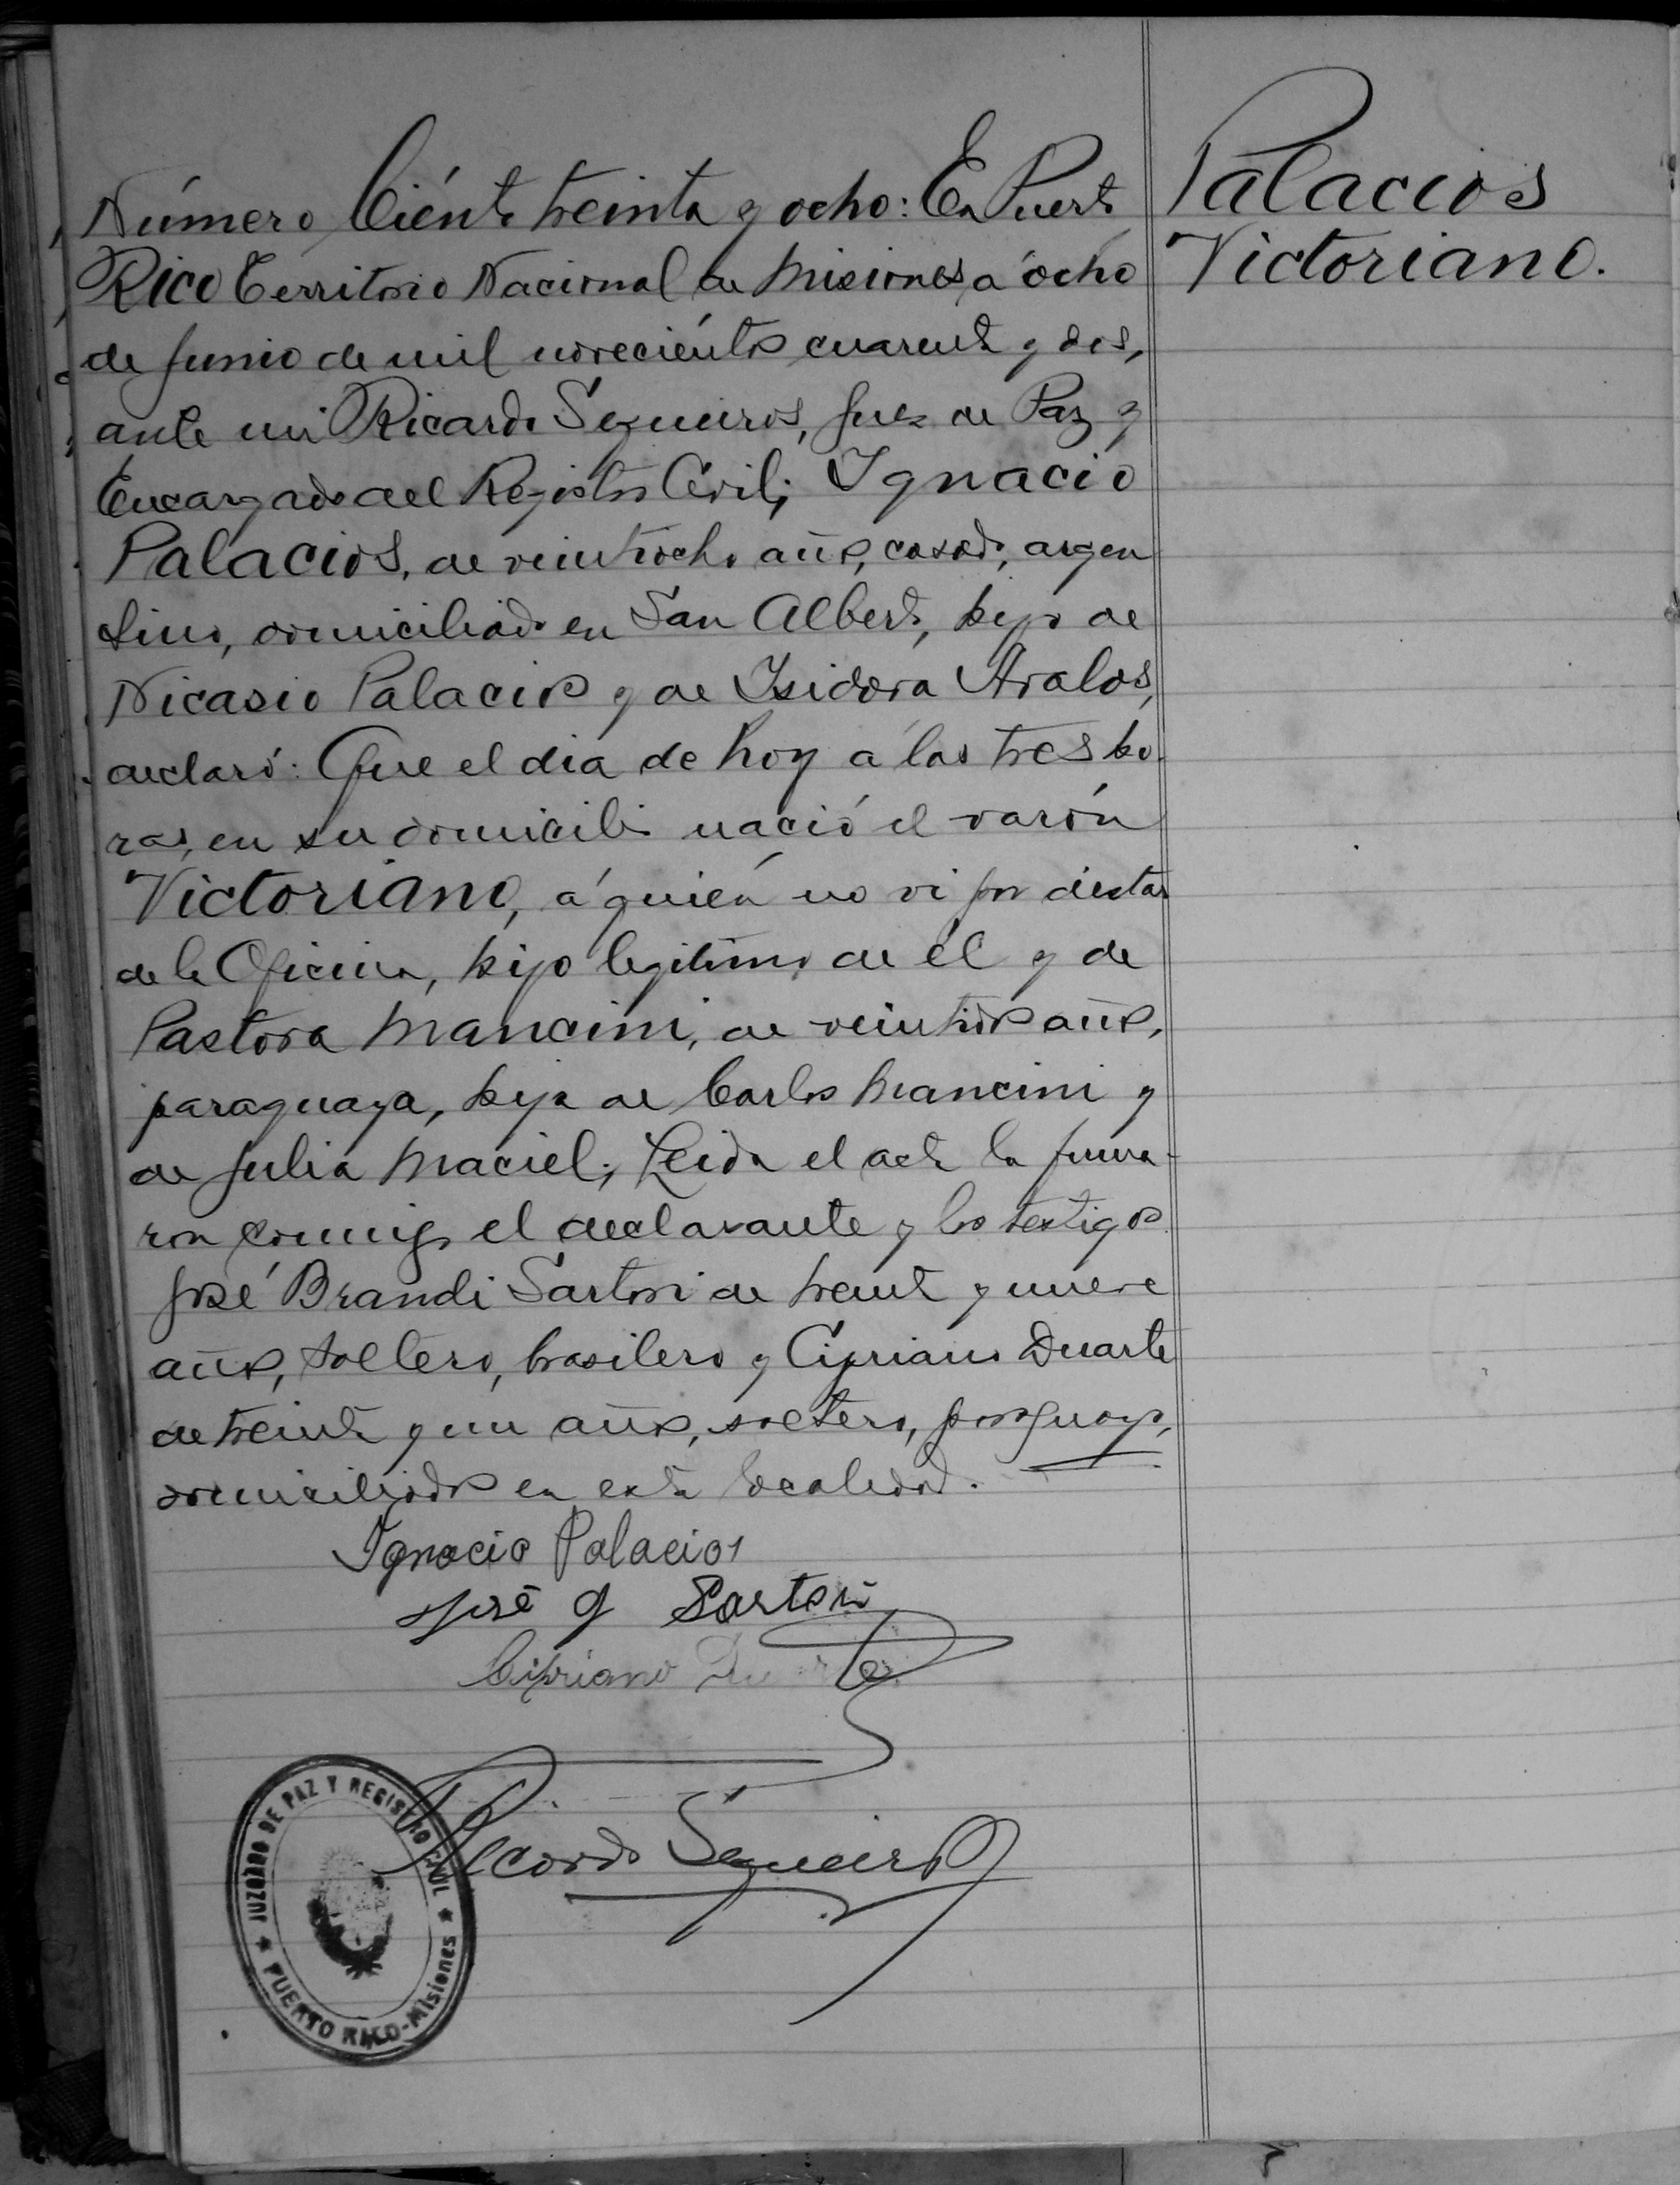 Palacios
Victoriano.
Número Ciénto treinta y ocho: En Puerto
Rico Territorio Nacional de Misiones, a ocho
de Junio de mil noveciéntos cuarenta y dos,
ante mi Ricardo Sequeiros, Juez de Paz y
Encargado del Registro Civil; Ignacio
Palacios, de veintiocho años, casado, argen
tino, domiciliado en San Alberto, hijo de
Nicasio Palacios y de Isidora Avalos,
declaró: Que el dia de hoy a las tres ho-
ras, en su domicilio nació el varón
Victoriano, a quién no vi por distar
de la Oficina, hijo legitimo de él y de
Pastora Mancini, de veintidos años,
paraguaya, hija de Carlos Mancini y
de Julia Maciel; Leida el acta la firma-
ron conmigo el declarante y los testigos
José Brandi Sartori de treinta y nueve
años, soltero, brasilero y Cipriano Duarte
de treinta y un años, soltero, paraguayo,
domiciliados en esta localidad.
Ignacio Palacios
José Sartori
Cipriano
Ricardo Sequeiros
JUZGADO DE PAZ Y REGISTRO CIVIL
PUERTO RICO-Misiones